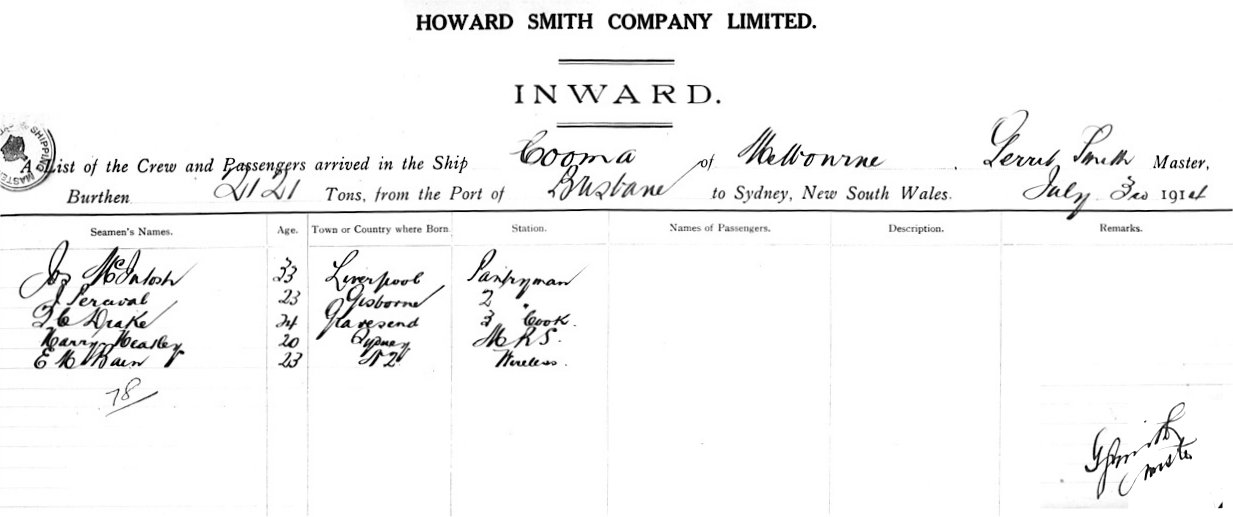 HOWARD SMITH COMPANY LIMITED.
INWARD.
A List of the Crew and Passengers arrived in the Ship Cooma of Melbourne. Gerrit Smith Master,
Burthen 2121 Tons, from the Port of Brisbane to Sydney, New South Wales. July 3rd 1914
Seamen's Names. Age. Town or Country where Born. Station. Names of Passengers. Description. Remarks.
Jos McIntosh 33 Liverpool Pantryman
J Percival 23 Gisborne 2 "
T C Drake 24 Gravesend 3 Cook.
Harry Heasley 20 Sydney M R S.
E M Bain 23 N Z Wireless.
78
G Smith
Master